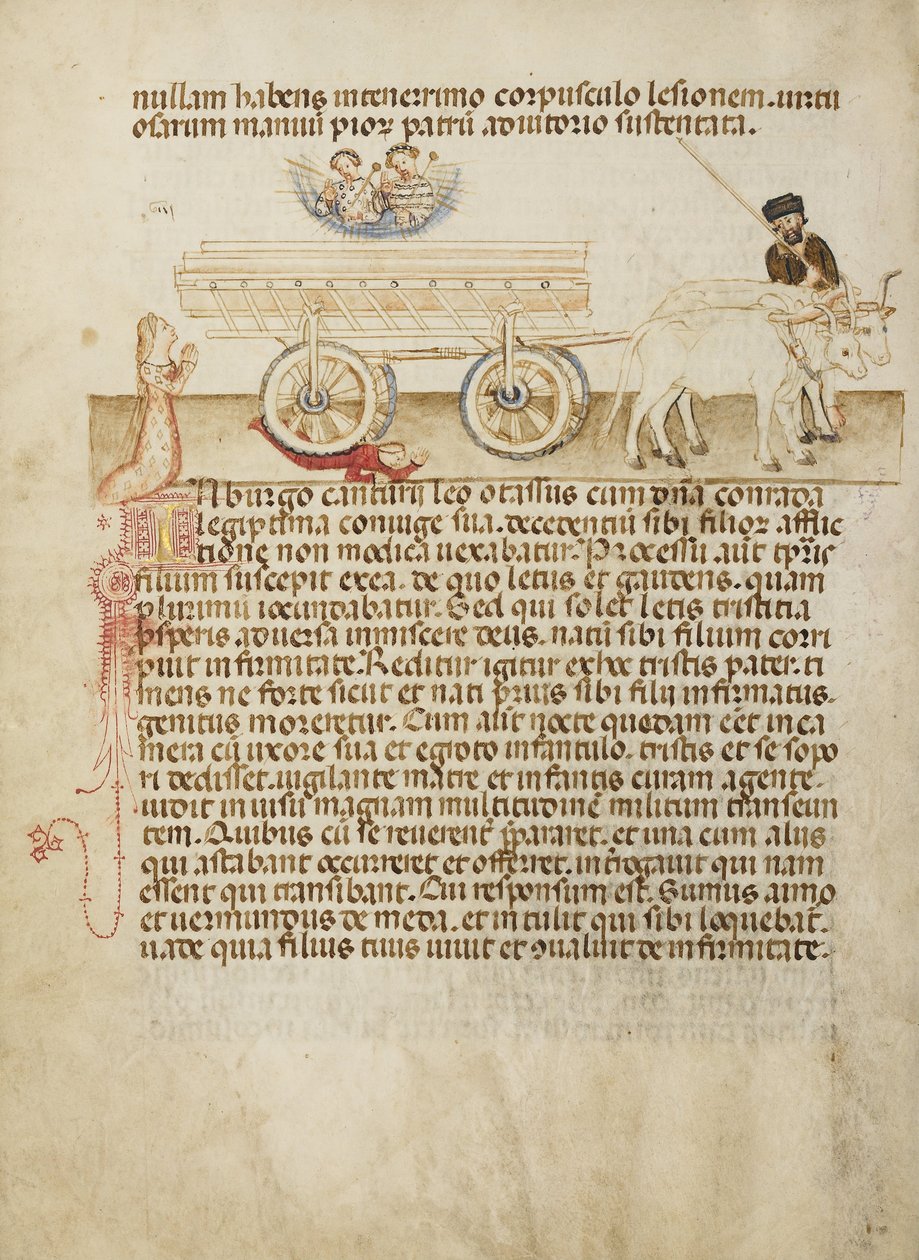 nullam habens intenerrimo corpusculo lesionem. uirtu
osarum manuū pioꝝ patrū aduitorio sustentata.
IN burgo canturij leo otassus cum dn̄a conrada
legiptima coniuge sua. decedentiū sibi filioꝝ afflic
tione non modica uexabatur. Processu aūt tp̄ris
filium suscepit exea. de quo letus et gaudens. quam
plurimū iocundabatur. Sed qui solet letis tristitia
ꝓsperis aduersa inmiscere deus. natū sibi filium corri
puit infirmitate. Reditur igitur exhoc tristis pater. ti
mens ne forte sicut et nati prius sibi filij infirmatus.
genitus moreretur. Cum aūt nocte quadam eēt inca
mera cū uxore sua et egroto infantulo. tristis et se sopo
ri dedisset. uigilante matre et infantis curam agente.
uidit inuisu magnam multitudinē militum transeun
tem. Quibus cū se reuerent̄ p̄pararet. et una cum alijs
qui astabant occurreret et offerret. int̄rogauit qui nam
essent qui transibant. Cui responsum est. Sumus aimo
et uermundus de meda. et intulit qui sibi loquebat̄.
uade quia filius tuus uiuit et ꝯualuit de infirmitate.